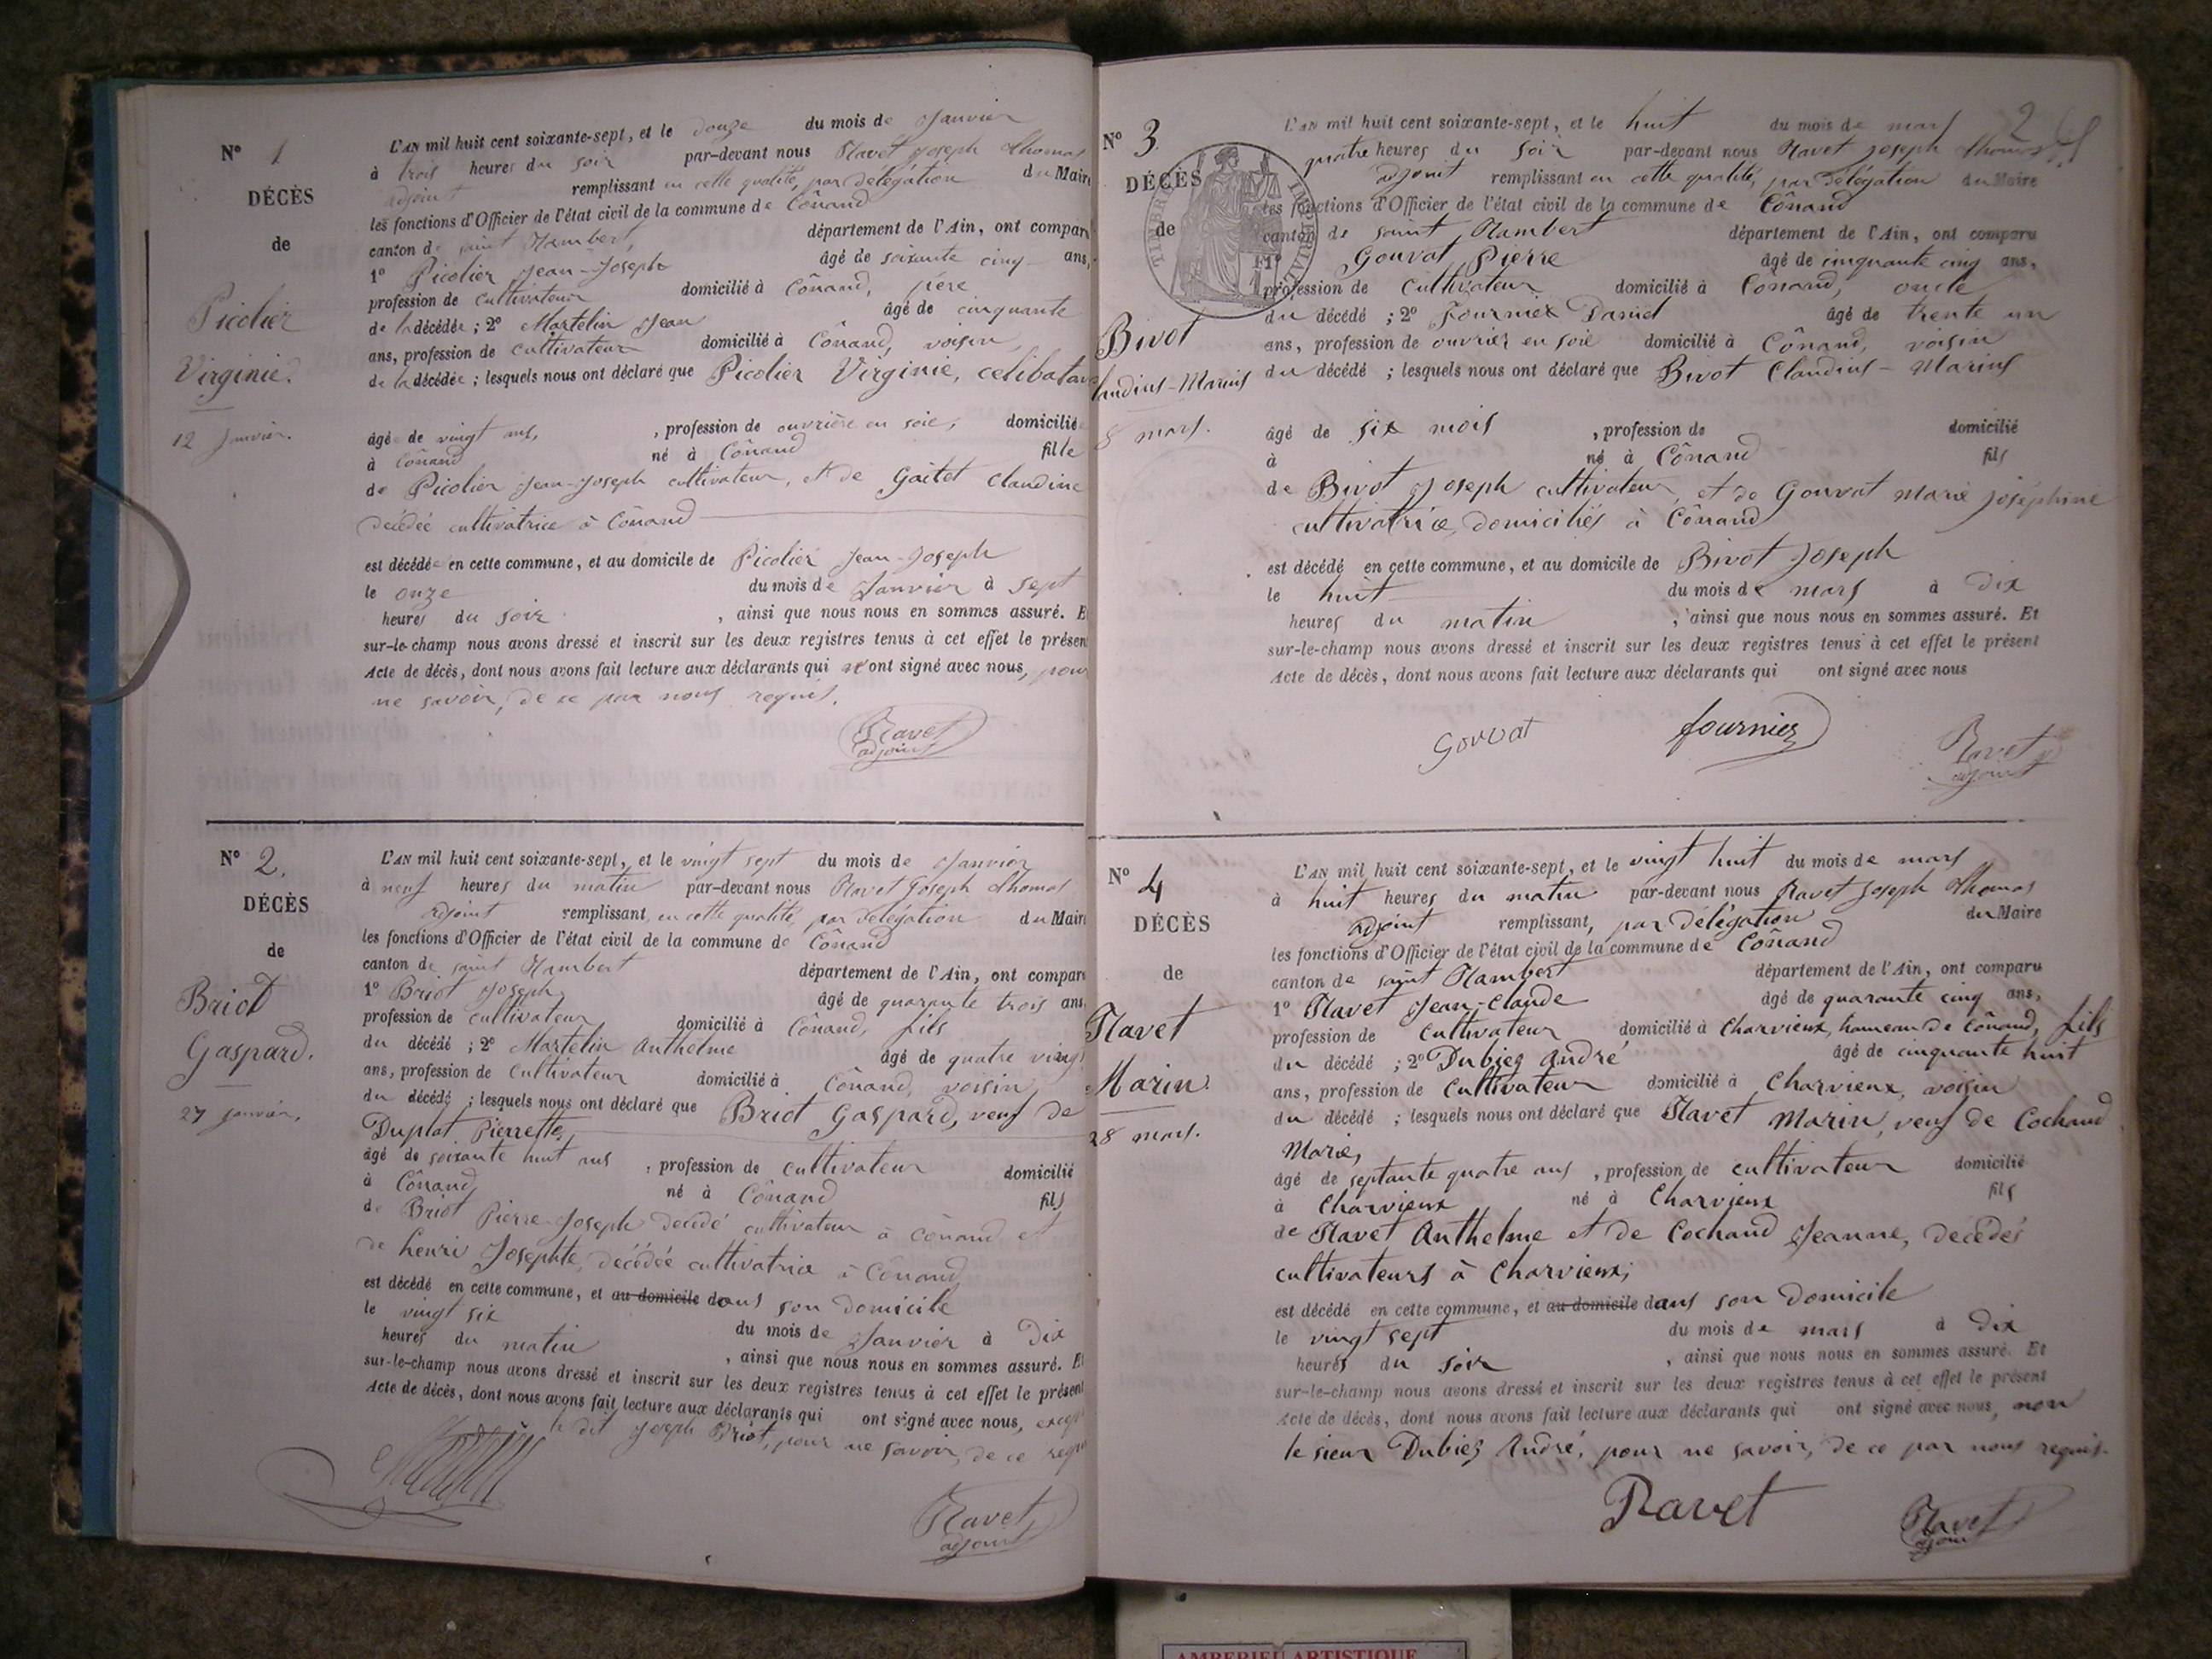 N° 1
DÉCÈS
de
Picolier
Virginie.
12 Janvier.
L'AN mil huit cent soixante-sept, et le douze du mois de Janvier
à trois heures du soir par-devant nous Ravet Joseph Thomas
adjoint remplissant en cette qualité, par délégation du Maire
les fonctions d'Officier de l'état civil de la commune de Cônand
canton de saint Rambert, département de l'Ain, ont compar
1° Picolier Jean-Joseph âgé de soixante cinq ans,
profession de cultivateur domicilié à Cônand, père
de la décédée ; 2° Martelin Jean âgé de cinquante
ans, profession de cultivateur domicilié à Cônand, voisin
de la décédée ; lesquels nous ont déclaré que Picolier Virginie, célibatai
âgée de vingt ans, , profession de ouvrière en soie, domicilié
à Cônand né à Cônand fille
de Picolier Jean-Joseph cultivateur, et de Gaitet Claudine
décédée cultivatrice à Cônand
est décédée en cette commune, et au domicile de Picolier Jean-Joseph
le onze du mois de Janvier à sept
heures du soir , ainsi que nous nous en sommes assuré. E
sur-le-champ nous avons dressé et inscrit sur les deux registres tenus à cet effet le présen
Acte de décès, dont nous avons fait lecture aux déclarants qui n'ont signé avec nous, pour
ne savoir, de ce par nous requis.
Ravet
adjoint
N° 2.
DÉCÈS
de
Briot
Gaspard.
27 janvier.
L'AN mil huit cent soixante-sept, et le vingt sept du mois de Janvier
à neuf heures du matin par-devant nous Ravet Joseph Thomas
adjoint remplissant en cette qualité, par délégation du Maire
les fonctions d'Officier de l'état civil de la commune de Cônand
canton de saint Rambert département de l'Ain, ont compar
1° Briot Joseph âgé de quarante trois ans
profession de cultivateur domicilié à Cônand, fils
du décédé ; 2° Martelin Anthelme âgé de quatre vingt
ans, profession de Cultivateur domicilié à Cônand, voisin
du décédé ; lesquels nous ont déclaré que Briot Gaspard, veuf de
Duplat Pierrette
âgé de soixante huit ans , profession de cultivateur domicilié
à Cônand né à Cônand fils
de Briot Pierre-Joseph décédé cultivateur à Cônand et
de henri Josephte, décédée cultivatrice à Cônand
est décédé en cette commune, et au domicile dans son domicile
le vingt six du mois de Janvier à Dix
heures du matin , ainsi que nous nous en sommes assuré. E
sur-le-champ nous avons dressé et inscrit sur les deux registres tenus à cet effet le présent
Acte de décès, dont nous avons fait lecture aux déclarants qui ont signé avec nous,
le dit Joseph Briot, pour ne savoir, de ce
Ravet
adjoint
2
N° 3.
DÉCÈS
de
TIMBRE IMPÉRIAL
Bivot
laudius-Marius
8 mars.
L'AN mil huit cent soixante-sept, et le huit du mois de mars
quatre heures du soir par-devant nous Ravet Joseph Thomas
adjoint remplissant en cette qualité, par délégation du Maire
les fonctions d'Officier de l'état civil de la commune de Cônand
canton de saint Rambert département de l'Ain, ont comparu
1° Gouvat Pierre âgé de cinquante cinq ans,
profession de cultivateur domicilié à Cônand, oncle
du décédé ; 2° Fournier Daniel âgé de trente un
ans, profession de ouvrier en soie domicilié à Cônand, voisin
du décédé ; lesquels nous ont déclaré que Bivot Claudius-Marius
âgé de six mois , profession de domicilié
à né à Cônand fils
de Bivot Joseph cultivateur, et de Gouvat Marie Joséphine
cultivatrice, domiciliés à Cônand
est décédé en cette commune, et au domicile de Bivot Joseph
le huit du mois de mars à Dix
heures du matin , ainsi que nous nous en sommes assuré. Et
sur-le-champ nous avons dressé et inscrit sur les deux registres tenus à cet effet le présent
Acte de décès, dont nous avons fait lecture aux déclarants qui ont signé avec nous
Gouvat fournier Ravet
adjoint
N° 4
DÉCÈS
de
Ravet
Marin.
28 mars.
L'AN mil huit cent soixante-sept, et le vingt huit du mois de mars
à huit heures du matin par-devant nous Ravet Joseph Thomas
adjoint remplissant, par délégation du Maire
les fonctions d'Officier de l'état civil de la commune de Cônand
canton de saint Rambert département de l'Ain, ont comparu
1° Ravet Jean-Claude âgé de quarante cinq ans,
profession de cultivateur domicilié à Charvieux, hameau de Cônand, fils
du décédé ; 2° Dubiez André âgé de cinquante huit
ans, profession de Cultivateur domicilié à Charvieux, voisin
du décédé ; lesquels nous ont déclaré que Ravet Marin, veuf de Cochaud
Marie,
âgé de septante quatre ans , profession de cultivateur domicilié
à Charvieux né à Charvieux fils
de Ravet Anthelme et de Cochaud Jeanne, décédés
cultivateurs à Charvieux;
est décédé en cette commune, et au domicile dans son domicile
le vingt sept du mois de mars à Dix
heures du soir , ainsi que nous nous en sommes assuré. Et
sur-le-champ nous avons dressé et inscrit sur les deux registres tenus à cet effet le présent
Acte de décès, dont nous avons fait lecture aux déclarants qui ont signé avec nous, non
le sieur Dubiez André, pour ne savoir, de ce par nous requis.
Ravet Ravet
adjoint
AMBERIEU ARTISTIQUE